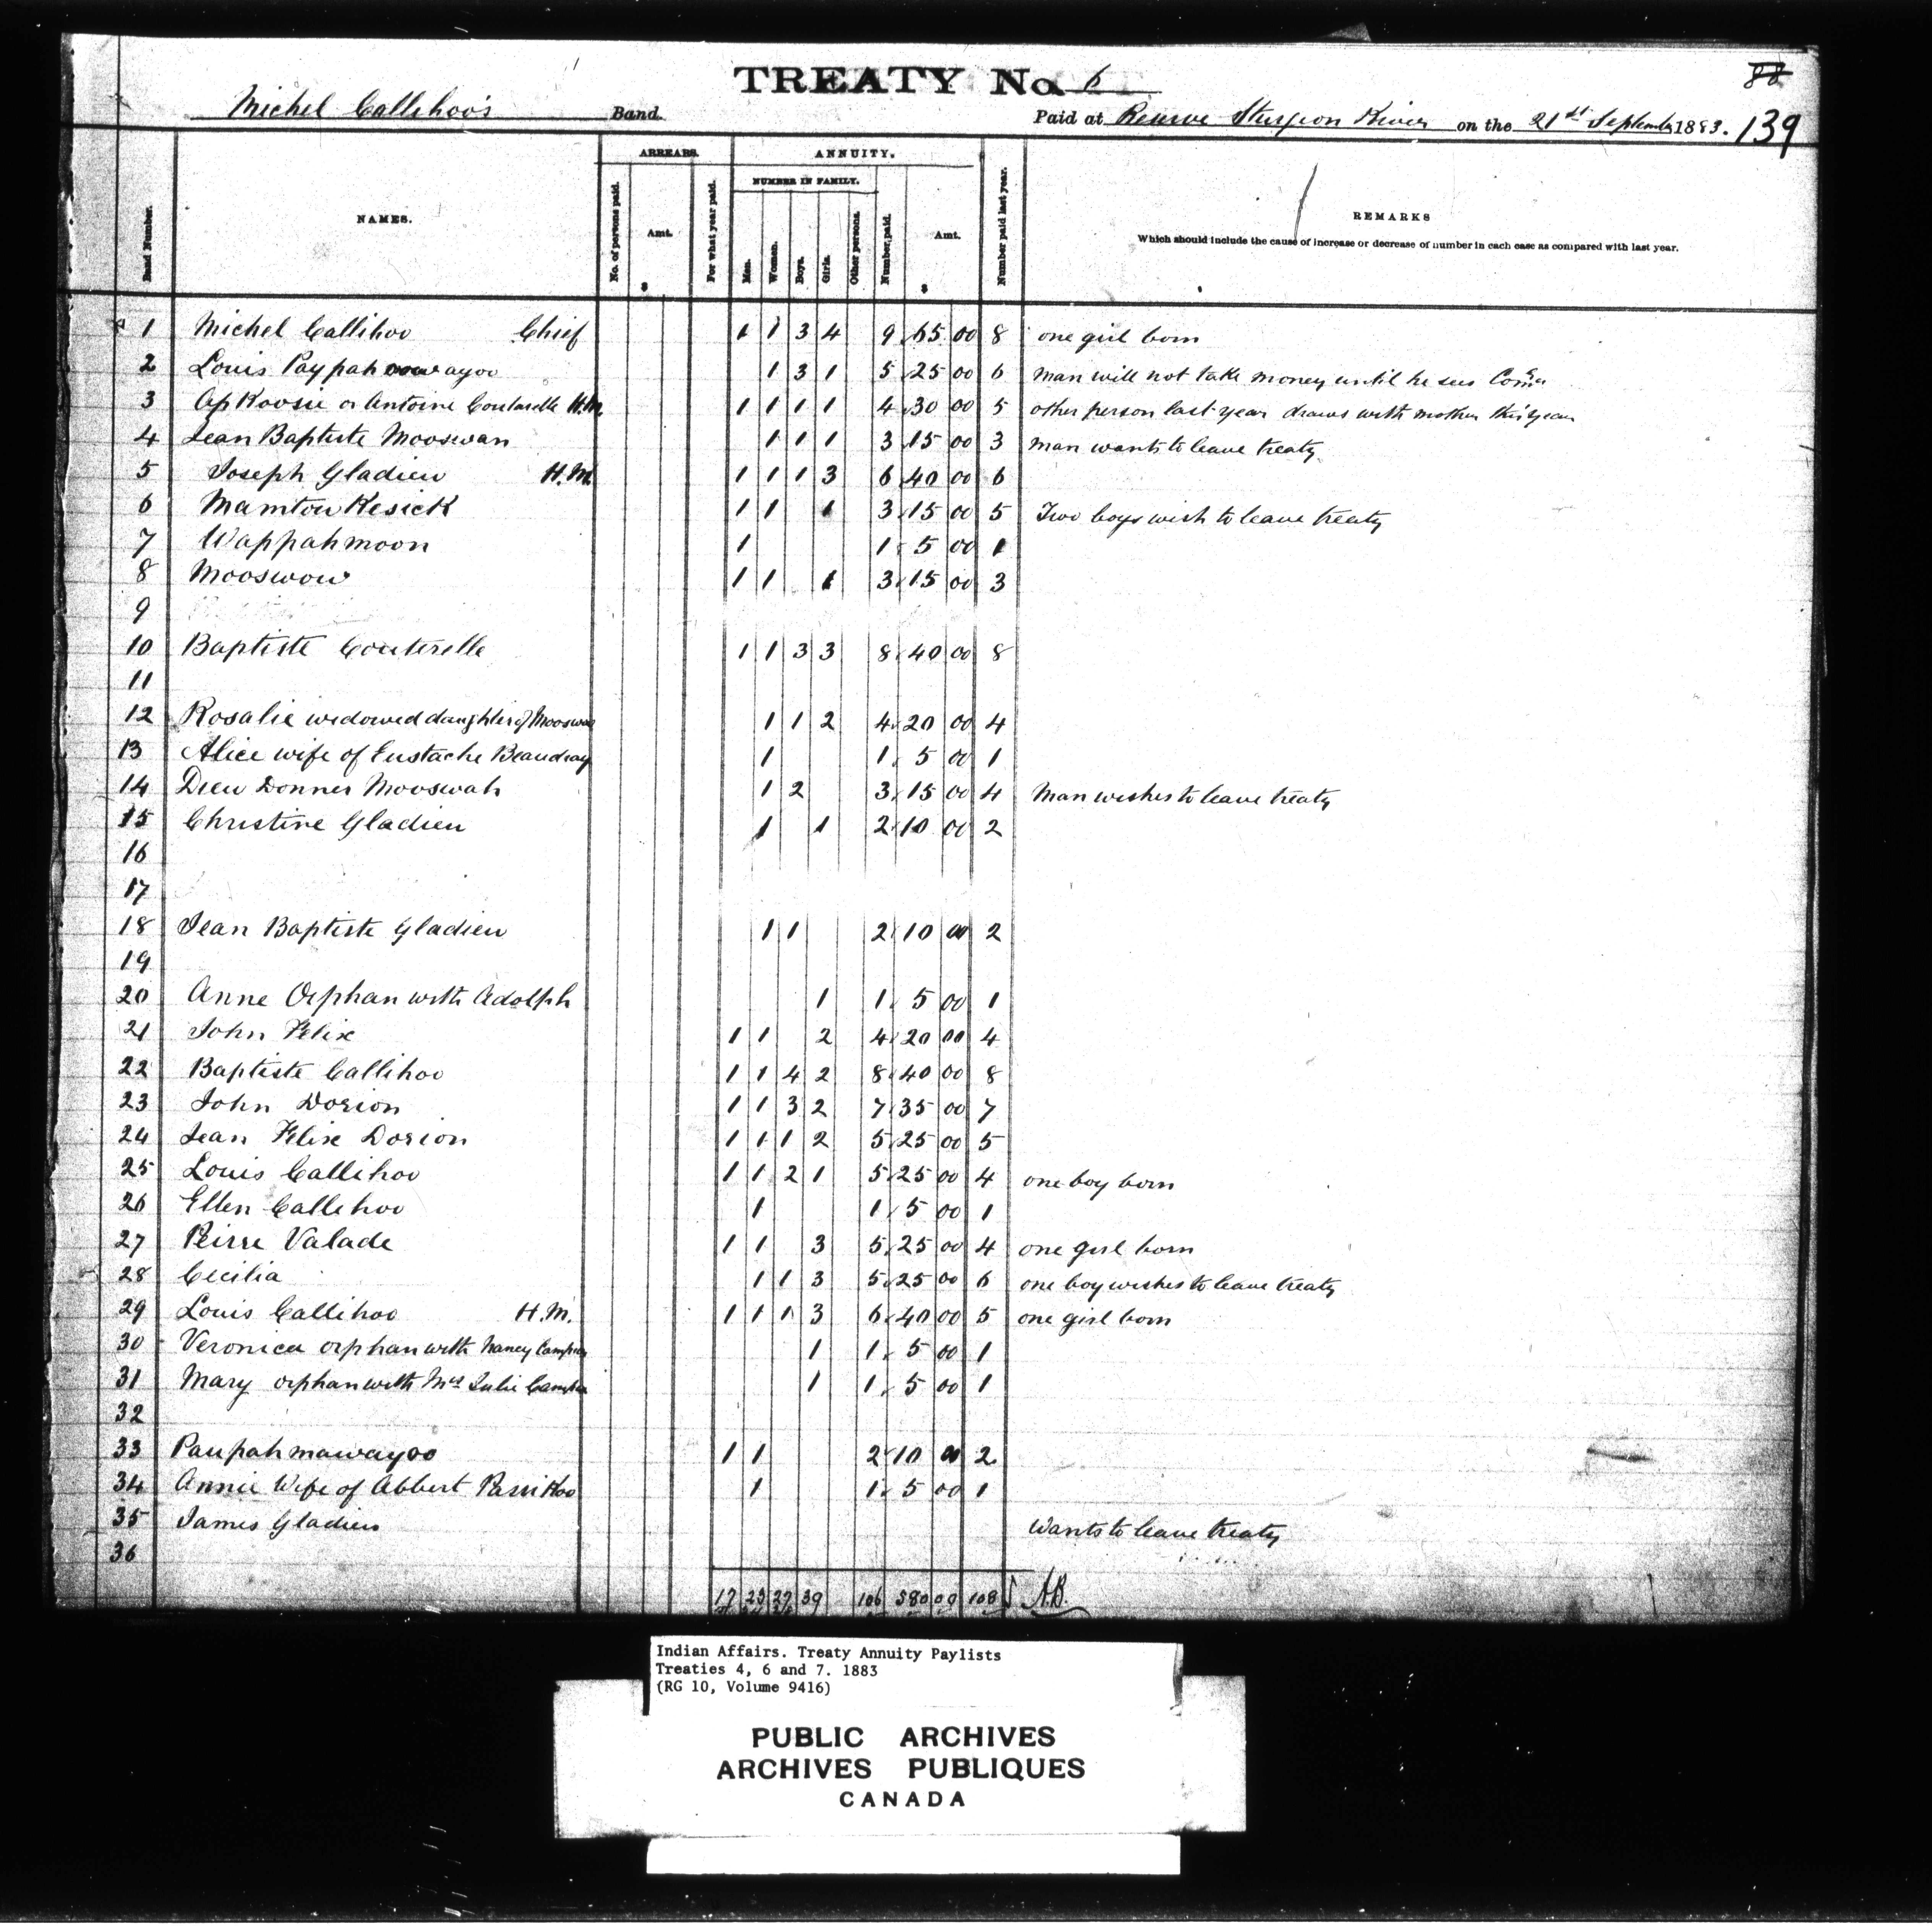 TREATY No. 6
88
Michel Callihoo's Band. Paid at Reserve Sturgeon River on the 21st September 1883. 139
ARREARS. ANNUITY.
NUMBER IN FAMILY.
Band Number. NAMES. No. of persons paid. Amt. $ For what year paid. Men. Women. Boys. Girls. Other persons. Number paid. Amt. $ Number paid last year. REMARKS
Which should include the cause of increase or decrease of number in each case as compared with last year.
1 Michel Callihoo Chief 1 1 3 4 9 65 00 8 one girl born
2 Louis Paypahmawayoo 1 3 1 5 25 00 6 man will not take money until he sees
3 Ap Koosie or Antoine Couterelle H.M. 1 1 1 1 4 30 00 5 other person last year draws with mother this year
4 Jean Baptiste Mooswan 1 1 1 3 15 00 3 man wants to leave treaty
5 Joseph Gladieu H.M. 1 1 1 3 6 40 00 6
6 Mamtou Kesick 1 1 1 3 15 00 5 Two boys wish to leave treaty
7 Wappahmoon 1 1 5 00 1
8 Mooswow 1 1 1 3 15 00 3
9
10 Baptiste Couterelle 1 1 3 3 8 40 00 8
11
12 Rosalie widowed daughter of Mooswa 1 1 2 4 20 00 4
13 Alice wife of Eustache Beaudray 1 1 5 00 1
14 Dieu Donner Mooswah 1 2 3 15 00 4 Man wishes to leave treaty
15 Christine Gladieu 1 1 2 10 00 2
16
17
18 Jean Baptiste Gladieu 1 1 2 10 00 2
19
20 Anne Orphan with Adolph 1 1 5 00 1
21 John Felix 1 1 2 4 20 00 4
22 Baptiste Callihoo 1 1 4 2 8 40 00 8
23 John Dorion 1 1 3 2 7 35 00 7
24 Jean Felix Dorion 1 1 1 2 5 25 00 5
25 Louis Callihoo 1 1 2 1 5 25 00 4 one boy born
26 Ellen Callihoo 1 1 5 00 1
27 Peirre Valade 1 1 3 5 25 00 4 one girl born
28 Cecilia 1 1 3 5 25 00 6 one boy wishes to leave treaty
29 Louis Callihoo H.M. 1 1 1 3 6 40 00 5 one girl born
30 Veronica orphan with Nancy 1 1 5 00 1
31 Mary orphan with Mrs Julie 1 1 5 00 1
32
33 Paupahmawayoo 1 1 2 10 00 2
34 Annie Wife of Abbert 1 1 5 00 1
35 James Gladieu Wants to leave treaty
36
17 23 27 39 106 580 00 108 A.B.
Indian Affairs. Treaty Annuity Paylists
Treaties 4, 6 and 7. 1883
(RG 10, Volume 9416)
PUBLIC ARCHIVES
ARCHIVES PUBLIQUES
CANADA